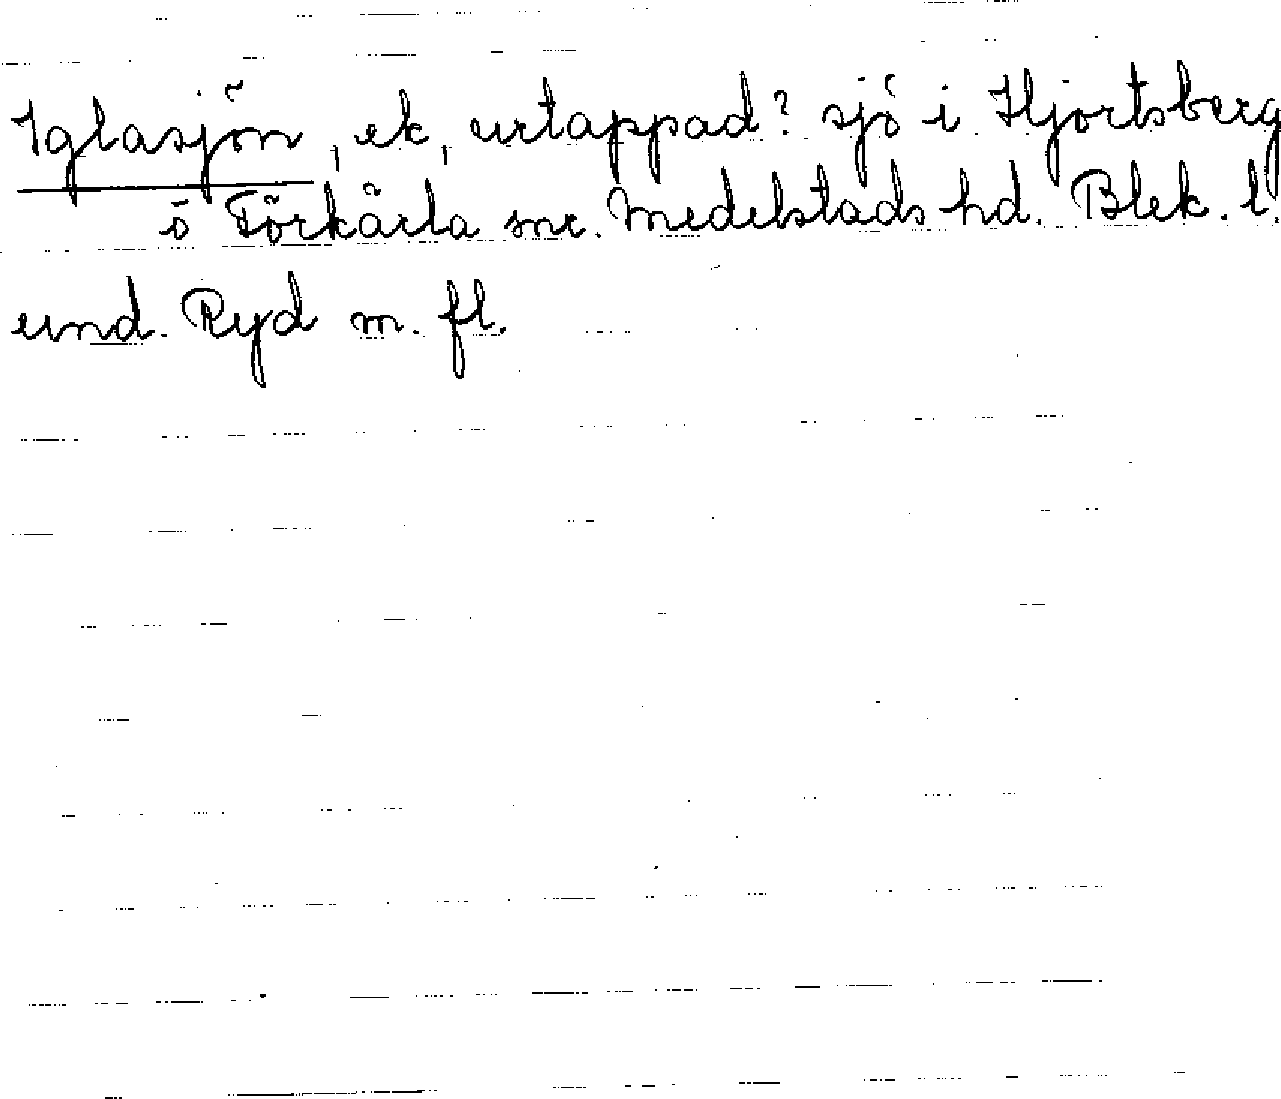 Iglasjön, ek, urtappad? sjö i Hjortsberg
ö Förkärla snr. Medelstads hd. Blek. l.
und. Ryd m. fl.